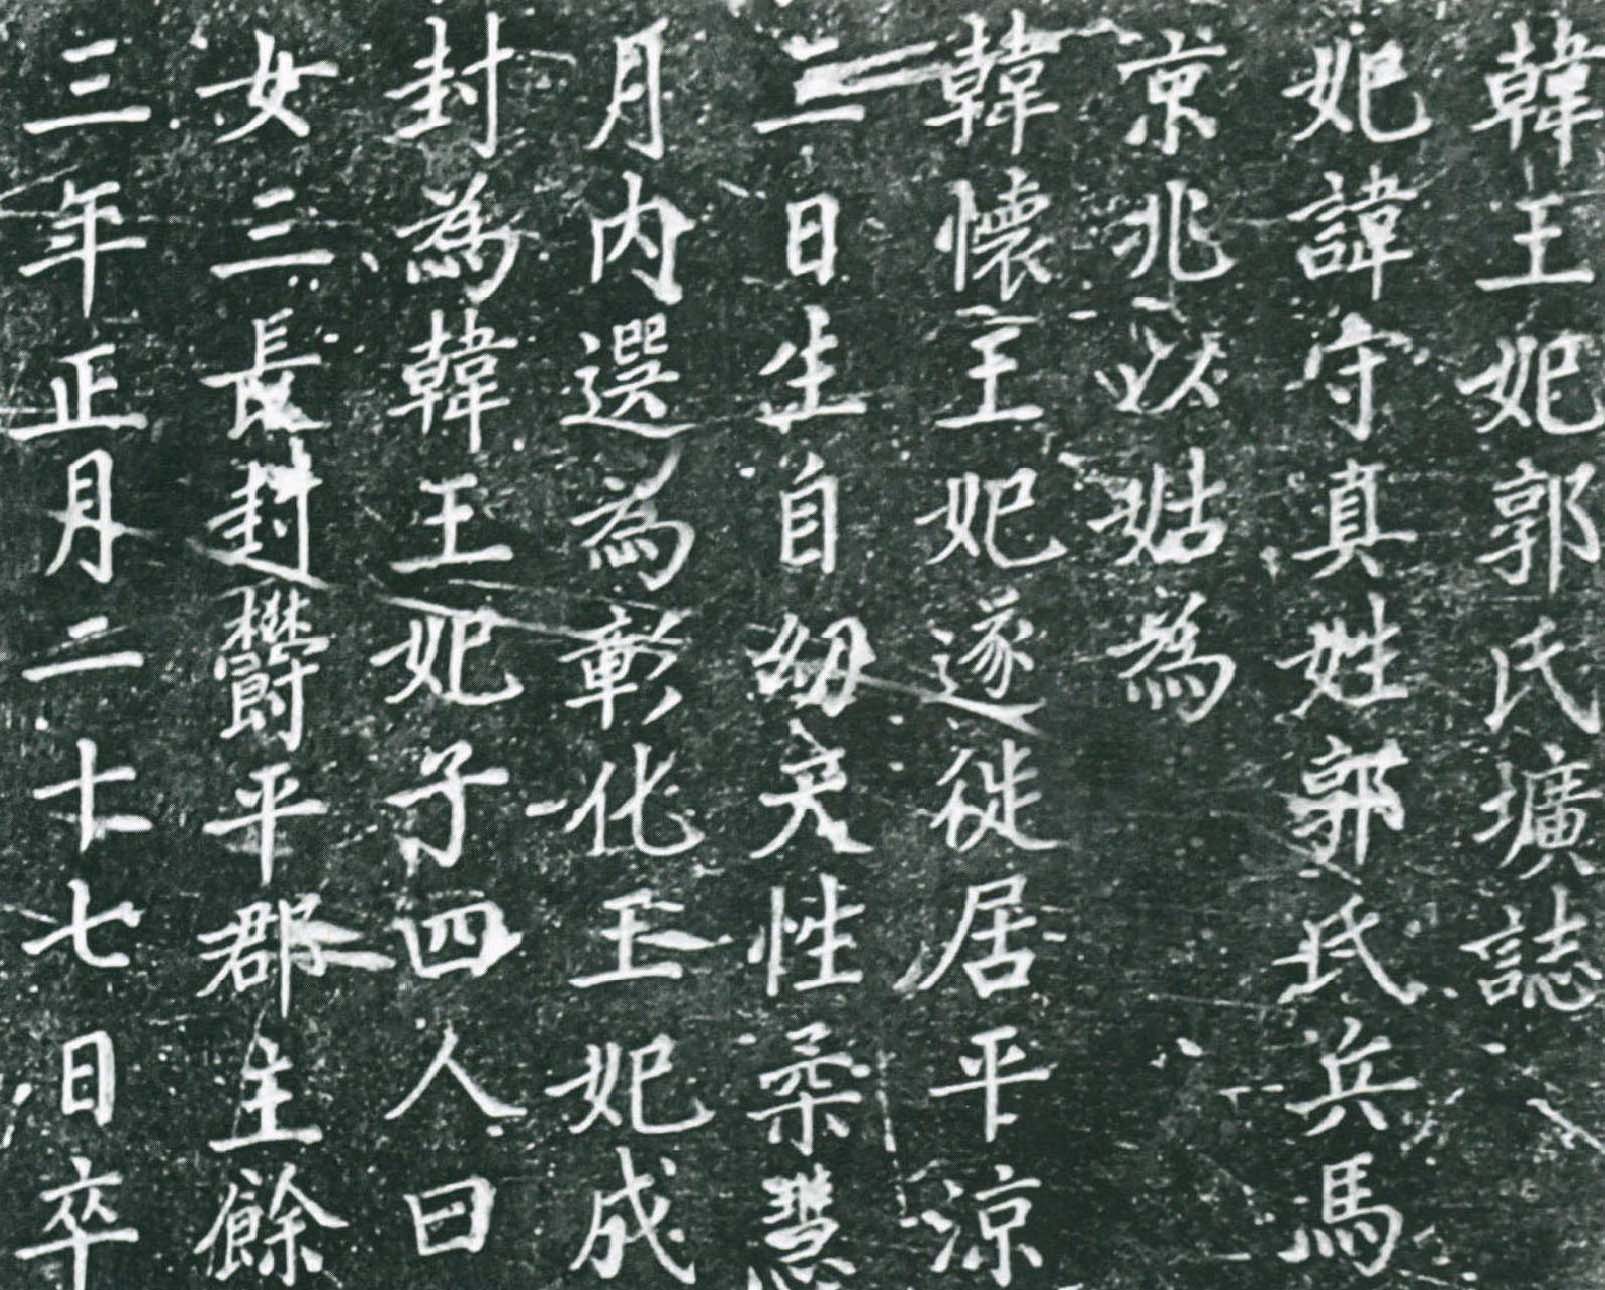 韓王妃郭氏壙誌
妃諱守真姓郭氏兵馬
京兆以姑為
韓懷王妃遂徙居平涼
三日生自幼天性柔慧
月內選為彰化王妃成
封為韓王妃子四人曰
女三長封欝平郡主餘
三年正月二十七日卒